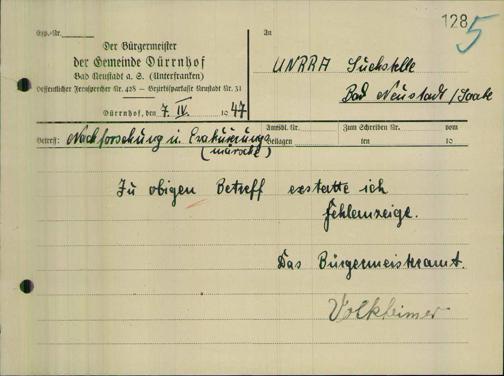 Exp.-Nr.
Der Bürgermeister
der Gemeinde Dürrnhof
Bad Neustadt a. S. (Unterfranken)
Oeffentlicher Fernsprecher Nr. 428 — Bezirkssparkasse Neustadt Nr. 31
Dürrnhof, den 7. IV. 1947
An
128
5
UNRRA Suchstelle
Bad Neustadt/Saale
Betreff: Nachforschung u. Evakuierungs
(märsche)
Amtsbl. Nr.
Beilagen
Zum Schreiben Nr. vom
ten 10
Zu obigen Betreff erstatte ich
Fehlanzeige.
Das Bürgermeisteramt.
Volkheimer